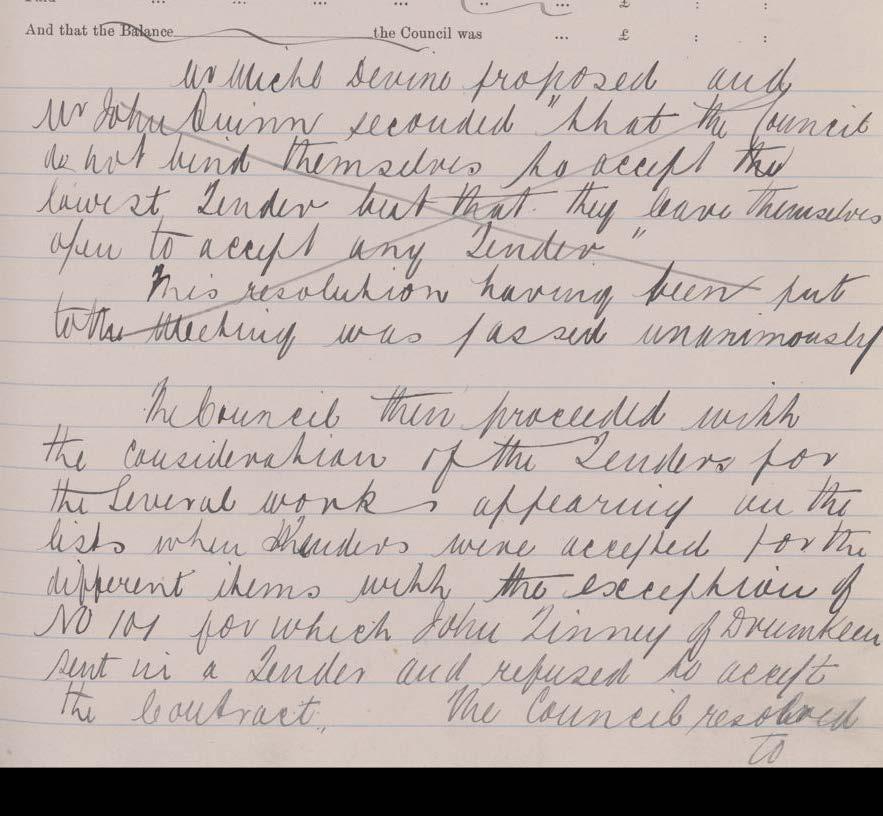 ... ... ... ... £ : :
And that the Balance the Council was ... £ : :
Mr Michl Devine proposed and
Mr John Quinn seconded "that the Council
do not bind themselves to accept the
lowest Tender but that they leave themselves
open to accept any Tender"
This resolution having been put
to the Meeting was passed unanimously
The Council then proceeded with
the consideration of the Tenders for
the Several works appearing on the
lists when Tenders were accepted for the
different items with the exception of
No 101 for which John Finney of Drumkeen
sent in a Tender and refused to accept
the Contract. The Council resolved
to